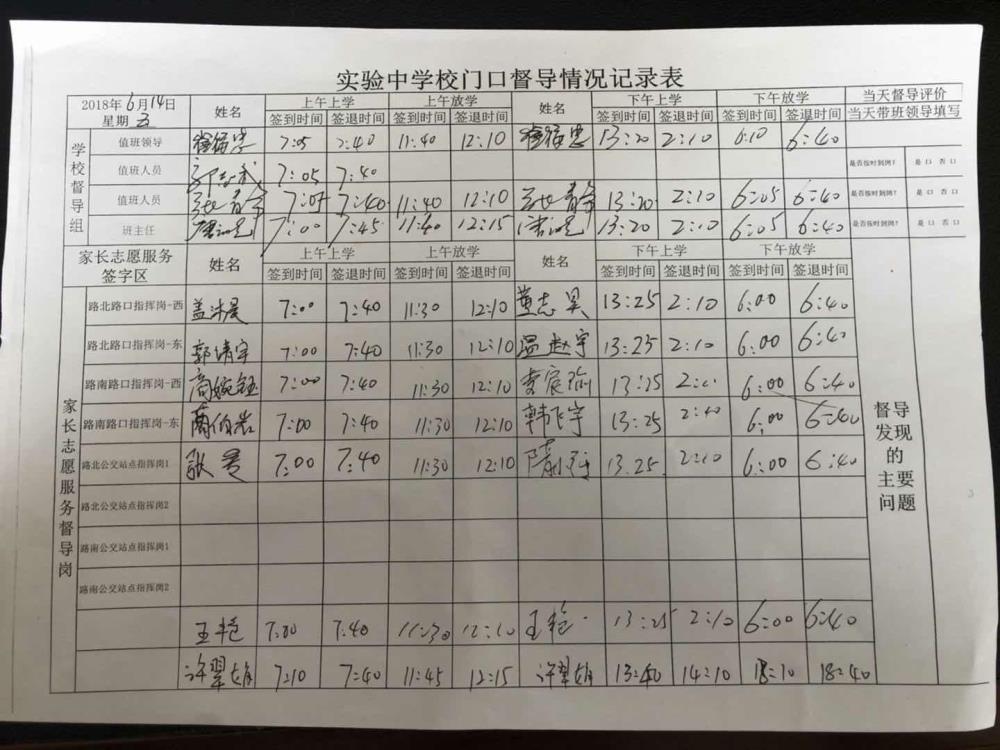 实验中学校门口督导情况记录表
2018年 6月 14日 姓名 上午上学 上午放学 姓名 下午上学 下午放学 当天督导评价
星期 签到时间 签退时间 签到时间 签退时间 签到时间 签退时间 签到时间 签退时间 当天带班领导填写
学校督导组
值班领导 7:05 7:40 11:40 12:10 13:20 2:10 6:10 6:40
值班人员 7:05 7:40 是否按时到岗? 是 口 否 口
值班人员 7:05 7:40 11:40 12:10 13:20 2:10 6:05 6:40 是否按时到岗? 是 口 否 口
班主任 7:00 7:45 11:40 12:15 13:20 2:10 6:05 6:40 是否按时到岗? 是 口 否 口
家长志愿服务 姓名 上午上学 上午放学 姓名 下午上学 下午放学
签字区 签到时间 签退时间 签到时间 签退时间 签到时间 签退时间 签到时间 签退时间
家长志愿服务督导岗
路北路口指挥岗-西 7:00 7:40 11:30 12:10 董志昊 13:25 2:10 6:00 6:40
路北路口指挥岗-东 郭靖宇 7:00 7:40 11:30 12:10 温赵宇 13:25 2:10 6:00 6:40
路南路口指挥岗-西 商婉钰 7:00 7:40 11:30 12:10 李宸瑜 13:25 6:00 6:40
路南路口指挥岗-东 蔺伯岩 7:00 7:40 11:30 12:10 韩飞宇 13:25 2:10 6:00 6:40
路北公交站点指挥岗1 7:00 7:40 11:30 12:10 13:25 2:10 6:00 6:40
路北公交站点指挥岗2
路南公交站点指挥岗1
路南公交站点指挥岗2
王艳 7:00 7:40 11:30 12:10 王艳 13:25 2:10 6:00 6:40
许翠娟 7:10 7:40 11:45 12:15 许翠娟 13:40 14:10 18:10 18:40
督导
发现
的
主要
问题